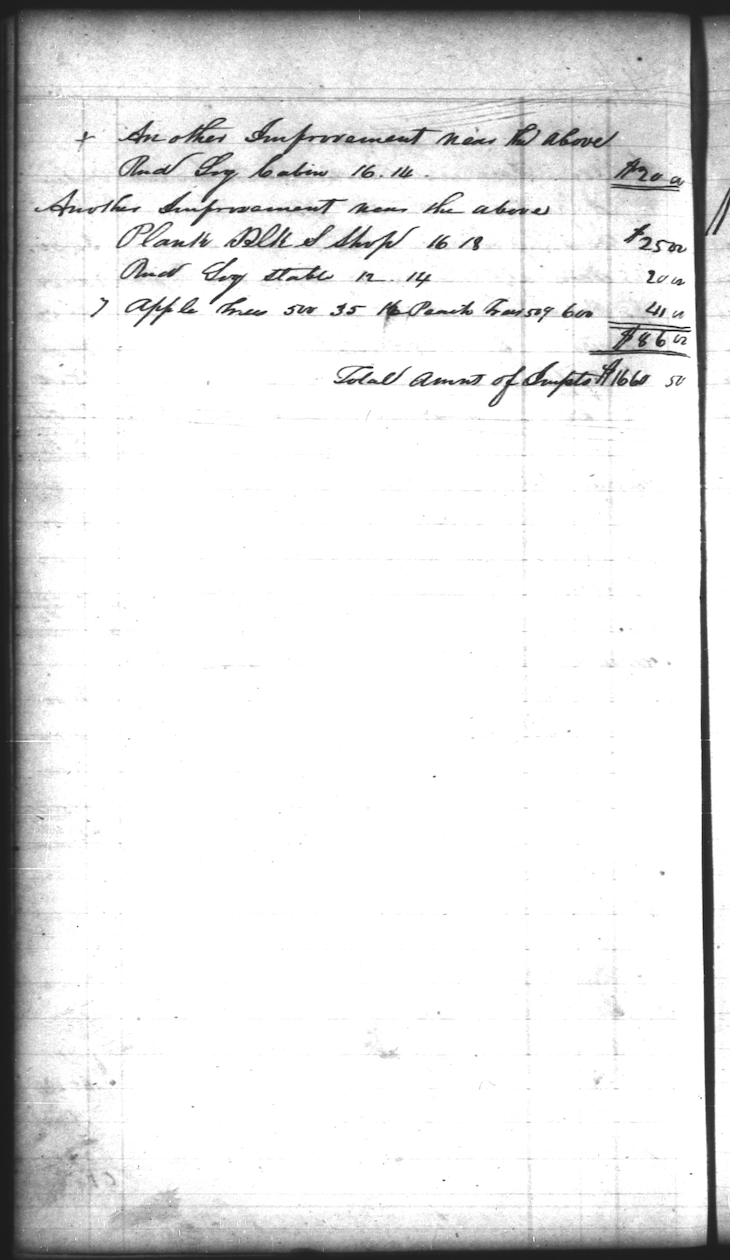 + Another Improvement near the above
Rnd Log Cabin 16.14. $20 00
Another Improvement near the above
Plank Blk S Shop 16 18 $25 00
Rnd Log stable 12.14 20 00
7 Apple trees 500 35 16 Peach trees 509 600 41 00
$86 00
Total Amnt of Impts $1660 50